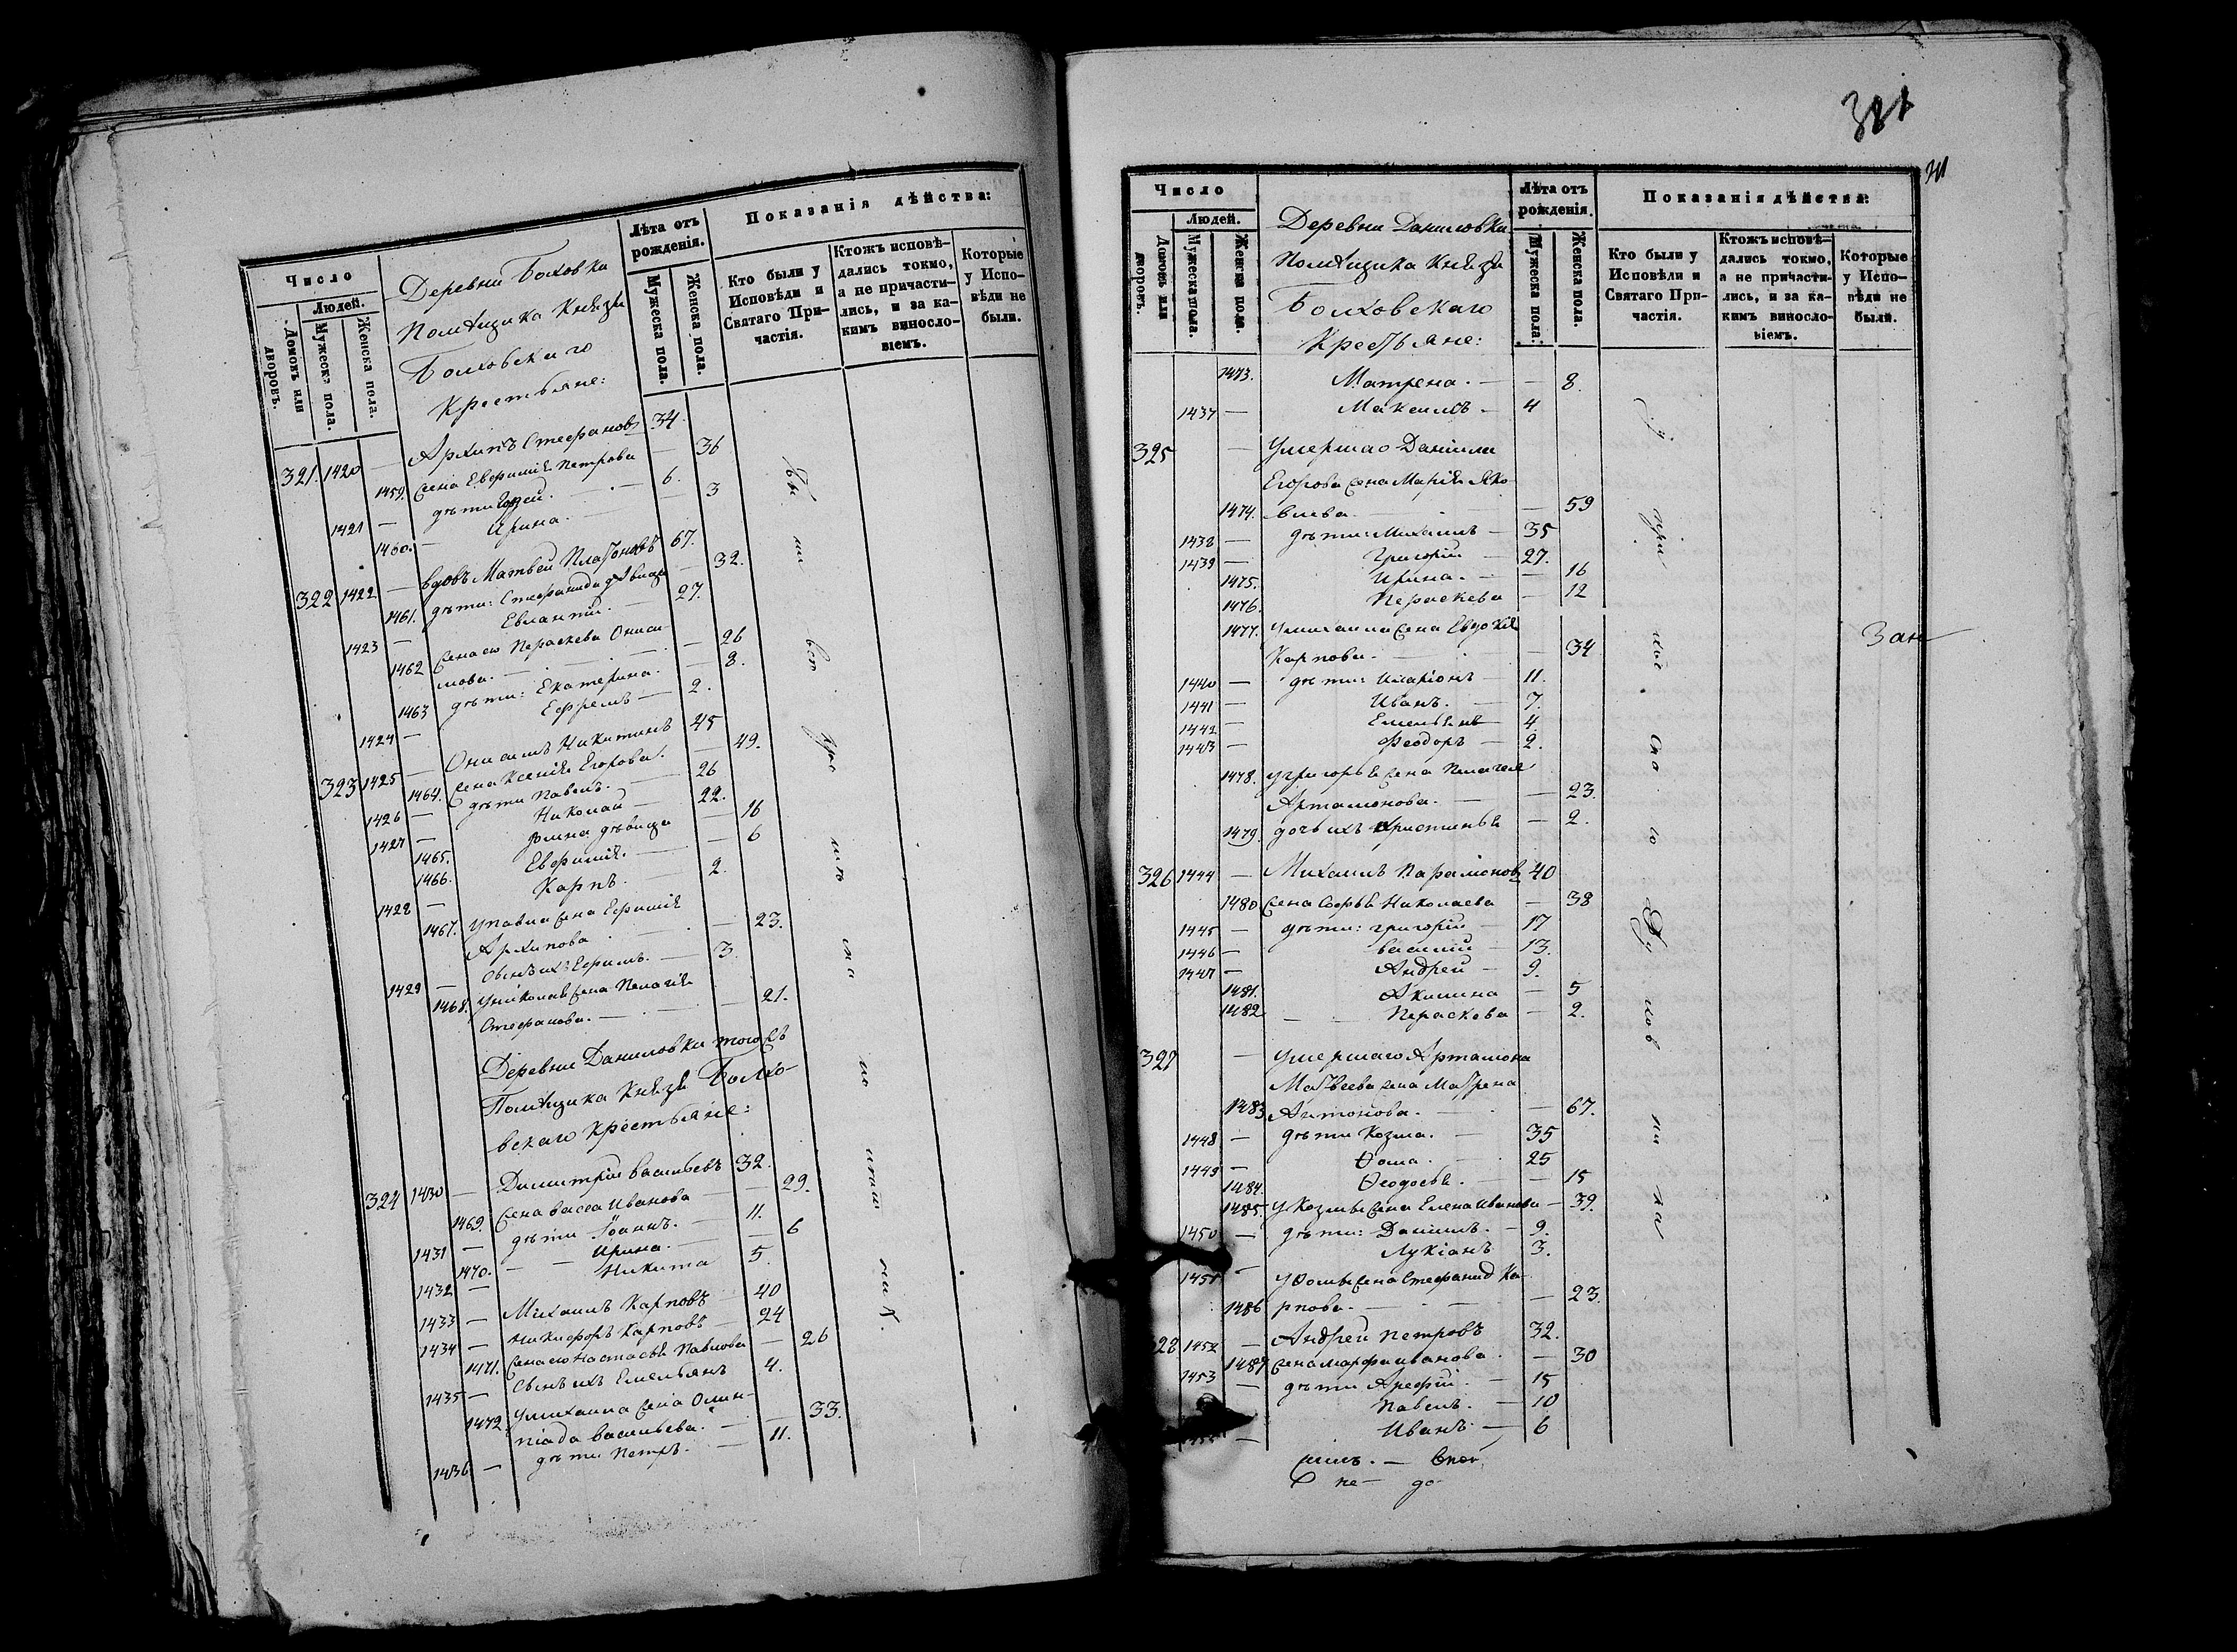 Число
Людей.
Домовъ или дворовъ.
Мужеска пола.
Женска пола.
Деревни Болховки
Помѣщика Князя
Болховскаго
Крестьяне:
Лѣта отъ рожденія.
Мужеска пола.
Женска пола.
Показанія дѣйства:
Кто были у Исповѣди и Святаго Причастія.
Ктожъ исповѣдались токмо, а не причастились, и за какимъ винословіемъ.
Которые у Исповѣди не были.
321. 1420 — Архипъ Стефановъ 34.
1459. Жена Евфимія Петрова — 36
1421 — дѣти: — 6.
1460. — Ирина. — 3
322 1422 — Вдовъ Матвей Платоновъ 67.
1461. дѣти: Стефанида дѣвица — 32.
1423 — Евлампій. — 27.
1462 Жена его Параскева Ониси-
мова. — 26
1463 дѣти: Екатерина. — 8.
1424 — Ефремъ — 2.
323 1425 — Онисимъ Никитинъ 45
1464. Жена Ксенія Егорова. — 49.
1426 — дѣти Павелъ. — 26
1427 — Николай — 22.
1465. дѣвица — 16
1466. Евфимія. — 6
1428 — Карпъ. — 2.
1467. У Павла жена Евфимія
Архипова — 23.
1429 — сынъ ихъ Ефимъ. — 3.
1468. У Николая жена Пелагія
Стефанова. — 21.
Деревни Даниловки тогожъ
Помѣщика Князя Болхо-
вскаго Крестьяне:
324 1430 — Димитрій Васильевъ 32.
1469. Жена Васса Иванова — 29.
1431 — дѣти Іоаннъ. — 11.
1470. — Ирина. — 6
1432 — Никита 5.
1433 — Михаилъ Карповъ 40
1434 — Никифоръ Карповъ — 24
1471. Жена его Настасья Павлова — 26
1435 — Сынъ ихъ Емельянъ 4.
1472. У Михаила жена Олим-
піада Васильева. — 33.
1436. — дѣти Петръ. — 11.
381
Число
Людей.
Домовъ или дворовъ.
Мужеска пола.
Женска пола.
Деревни Даниловки
Помѣщика Князя
Болховскаго
Крестьяне:
Лѣта отъ рожденія.
Мужеска пола.
Женска пола.
Показанія дѣйства:
Кто были у Исповѣди и Святаго Причастія.
Ктожъ исповѣдались токмо, а не причастились, и за какимъ винословіемъ.
Которые у Исповѣди не были.
1473. Матрена. — — 8.
1437 — Максимъ — 4
325 — Умершаго Даніила
Егорова жена Марія Яко-
1474. влева — 59
1438 — дѣти: Михаилъ — 35
1439 — Григорій — 27.
1475. Ирина. — — 16
1476. Параскева — 12
1477. У Михаила жена Евдокія
Карпова. — 34
1440 — дѣти: Иларіонъ — 11.
1441 — Иванъ. — 7.
1442 — Емельянъ — 4.
1443 — Феодоръ — 2.
1478. У Григорья жена Пелагея
Артамонова. — — 23.
1479. дочь ихъ Христинья — 2.
326 1444 — Михаилъ Парамоновъ 40
1480 Жена Софья Николаева — 38
1445 — дѣти: Григорій — 17
1446 — Василій — 13.
1447 — Андрей — 9.
1481. Акилина — 5
1482 — Параскева — 2.
327 — Умершаго Артамона
Матвеева жена Матрена
1483 Антонова. — — 67.
1448 — дѣти Козма. — 35
1449 — Ѳома. — 25
1484. Ѳеодосья. — — 15
1485. У Козмы жена Елена Иванова — 39.
1450 — дѣти: Даніилъ. — 9.
1451 — Лукіанъ 3.
У Ѳомы жена Стефанид Ка-
1486 рпова. — — 23.
28 1452 — Андрей Петровъ 32.
1487 Жена Марфа Иванова — 30
1453 — дѣти Арефій. — 15
Павелъ. — 10
— Иванъ — 6